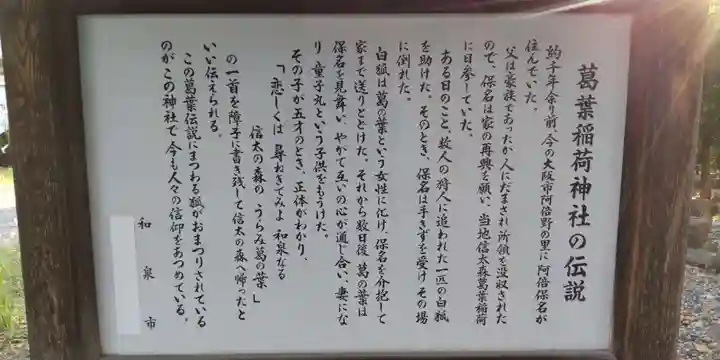 葛葉稲荷神社の伝説
約千年余り前、今の大阪市阿倍野の里に阿倍保名が
住んでいた。
父は豪族であったが人にだまされ、所領を没収された
ので、保名は家の再興を願い、当地信太森葛葉稲荷
に日参していた。
ある日のこと、数人の狩人に追われた一匹の白狐
を助けた。そのとき、保名は手きずを受け、その場
に倒れた。
白狐は葛の葉という女性に化け、保名を介抱して
家まで送りとどけた。それから数日後、葛の葉は
保名を見舞い、やがて互いの心が通じ合い、妻にな
り、童子丸という子供をもうけた。
その子が五才のとき、正体がわかり、
「恋しくは 尋ねきてみよ 和泉なる
信太の森の うらみ葛の葉」
の一首を障子に書き残して信太の森へ帰ったと
いい伝えられる。
この葛葉伝説にまつわる狐がおまつりされている
のがこの神社で、今も人々の信仰をあつめている。
和泉市